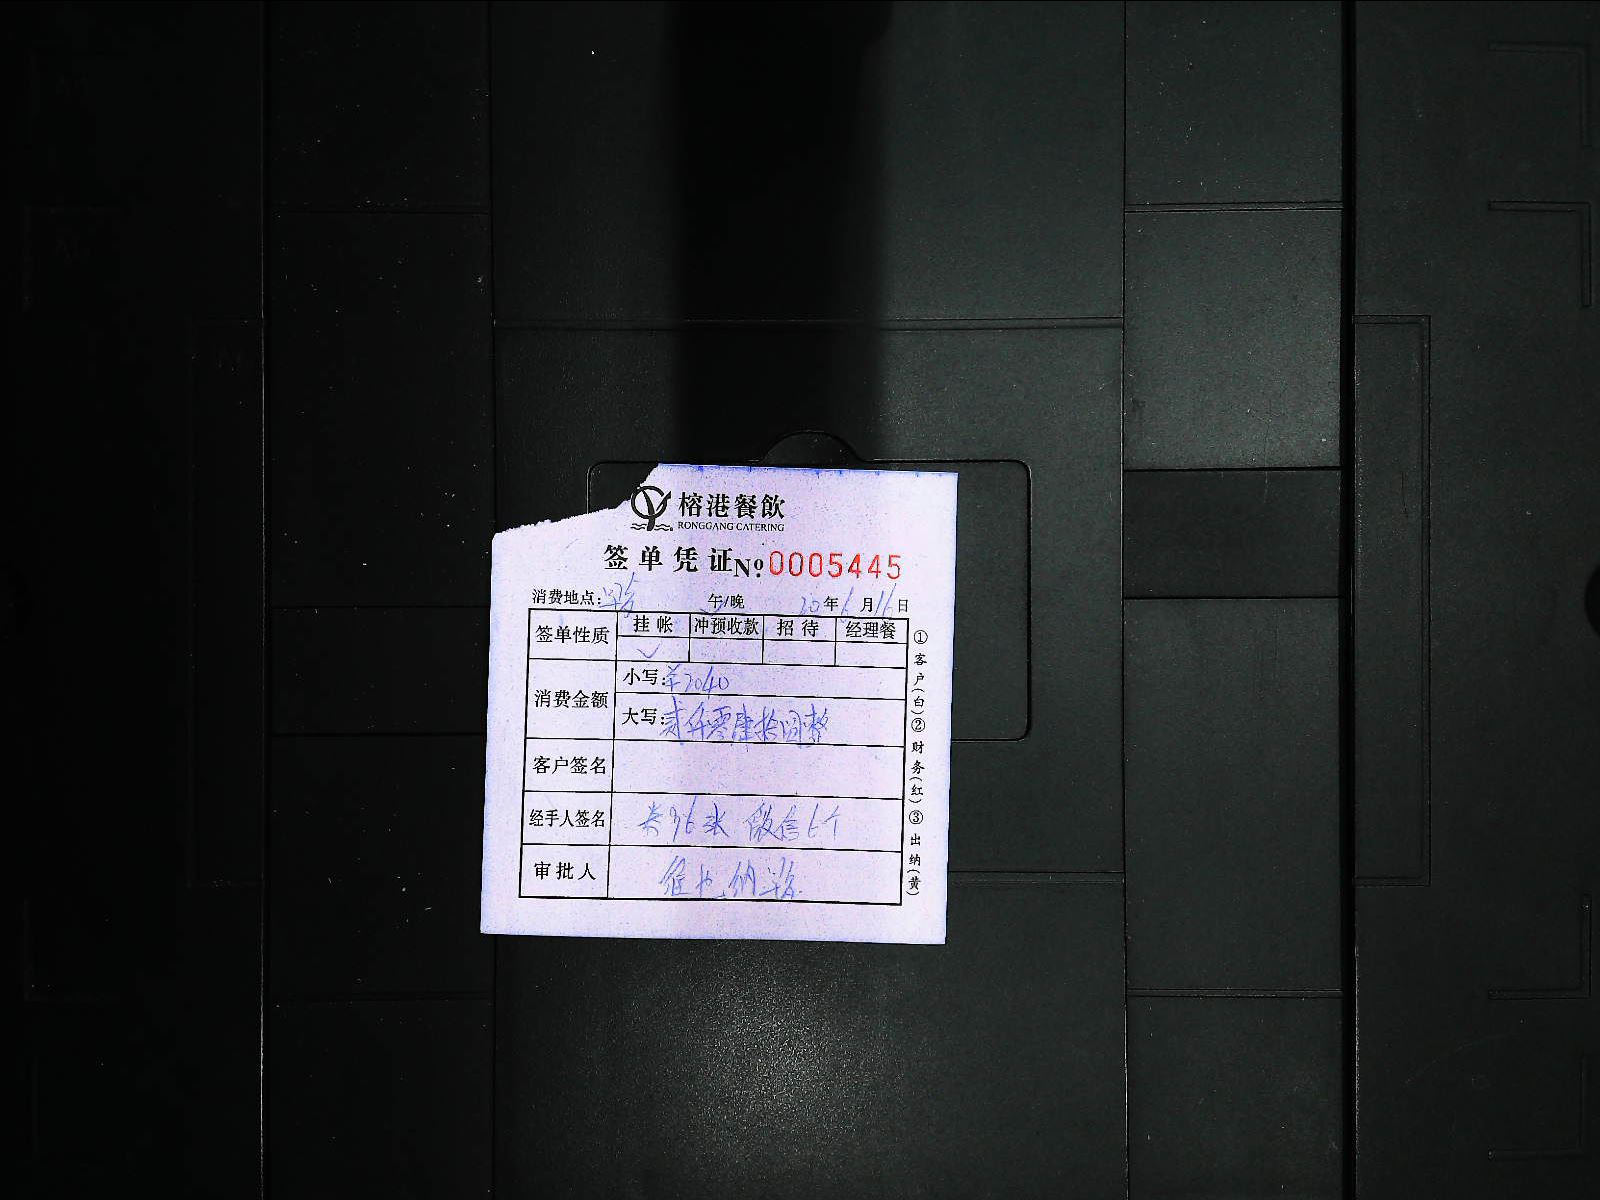 榕港餐飲
RONGGANG CATERING
签单凭证 №0005445
消费地点: 午/晚 20年6月16日
签单性质 挂帐 冲预收款 招待 经理餐
✓
消费金额 小写:￥2040
大写:贰仟零肆拾圆整
客户签名
经手人签名 券36张 微信6个
审批人 维也纳
①客户(白)②财务(红)③出纳(黄)